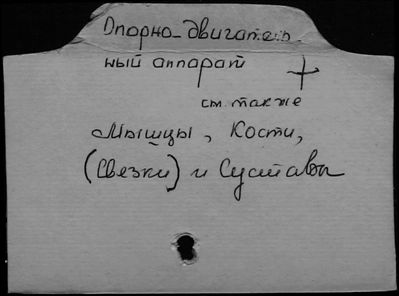 Опорно-двигатель
ный аппарат
см. также
Мышцы, Кости,
(Связки) и Суставы